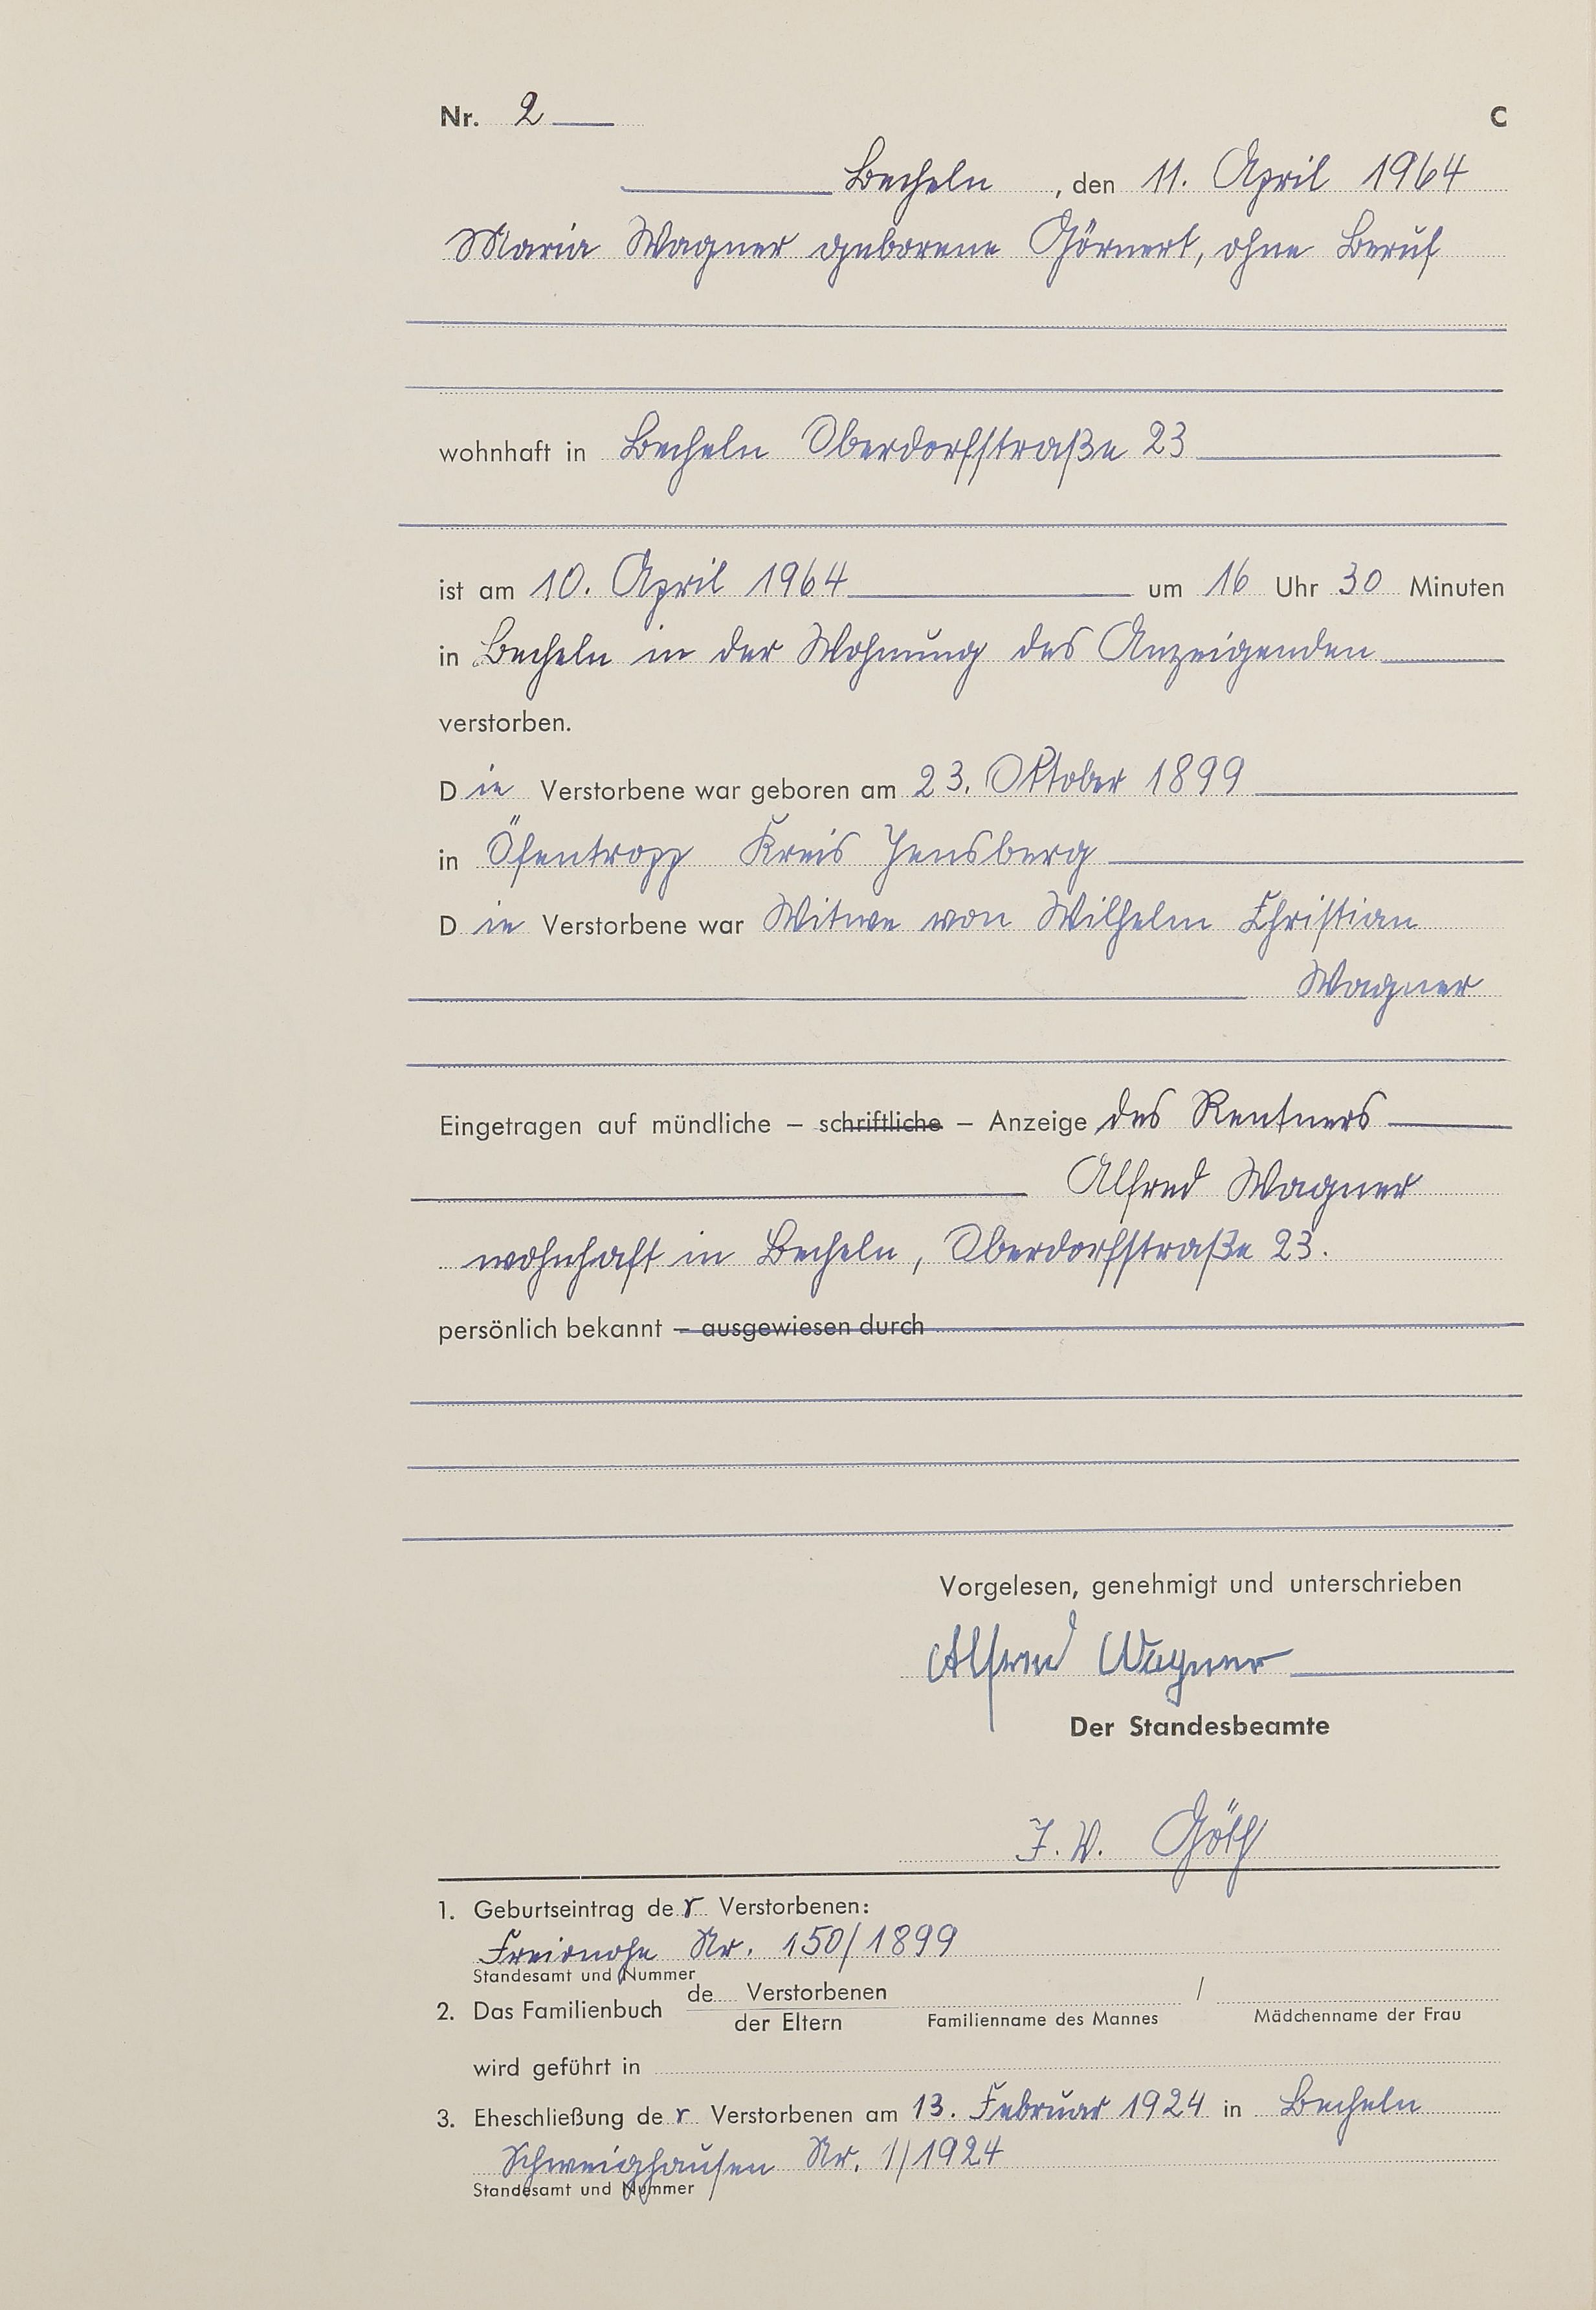 Nr. 2 C
Becheln, den 11. April 1964
Maria Wagner geborene Görnert, ohne Beruf
wohnhaft in Becheln Oberdorfstraße 23
ist am 10. April 1964 um 16 Uhr 30 Minuten
in Becheln in der Wohnung des Anzeigenden
verstorben.
Die Verstorbene war geboren am 23. Oktober 1899
in Öfentropp Kreis Jensberg
Die Verstorbene war Witwe von Wilhelm Christian
Wagner
Eingetragen auf mündliche – schriftliche – Anzeige des Rentners
Alfred Wagner
wohnhaft in Becheln, Oberdorfstraße 23.
persönlich bekannt – ausgewiesen durch
Vorgelesen, genehmigt und unterschrieben
Alfred Wagner
Der Standesbeamte
I. V. Göth
1. Geburtseintrag der Verstorbenen:
Freienohe Nr. 150/1899
Standesamt und Nummer
2. Das Familienbuch de Verstorbenen /
der Eltern Familienname des Mannes Mädchenname der Frau
wird geführt in
3. Eheschließung der Verstorbenen am 13. Februar 1924 in Becheln
Schweighausen Nr. 1/1924
Standesamt und Nummer